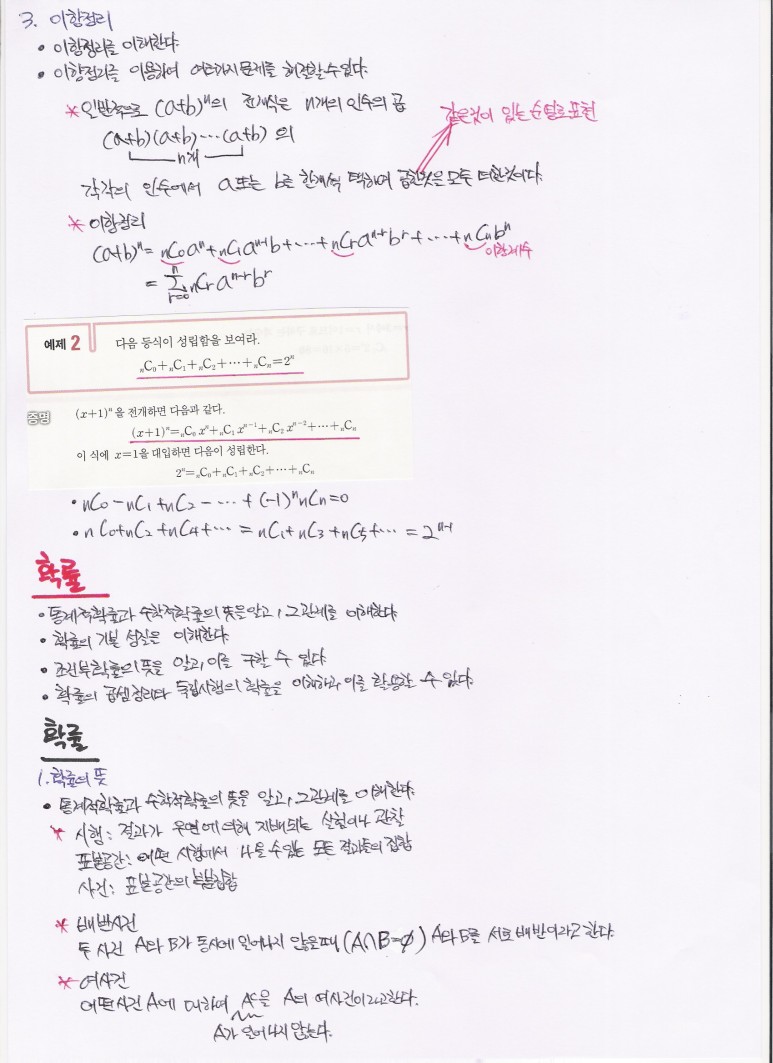 3. 이항정리
• 이항정리를 이해한다.
• 이항정리를 이용하여 여러가지 문제를 해결할 수 있다.
* 일반적으로 (a+b)ⁿ의 전개식은 n개의 인수의 곱
같은것이 있는 순열로 표현
(a+b)(a+b)⋯(a+b) 의
n개
각각의 인수에서 a또는 b를 한개씩 택하여 곱한것을 모두 더한것이다.
* 이항정리
(a+b)ⁿ = nC₀aⁿ+nC₁aⁿ⁻¹b+⋯+nCᵣaⁿ⁻ʳbʳ+⋯+nCₙbⁿ
이항계수
= Σⁿᵣ₌₀ nCᵣaⁿ⁻ʳbʳ
예제 2 다음 등식이 성립함을 보여라.
ₙC₀+ₙC₁+ₙC₂+⋯+ₙCₙ=2ⁿ
증명 (x+1)ⁿ을 전개하면 다음과 같다.
(x+1)ⁿ=ₙC₀xⁿ+ₙC₁xⁿ⁻¹+ₙC₂xⁿ⁻²+⋯+ₙCₙ
이 식에 x=1을 대입하면 다음이 성립한다.
2ⁿ=ₙC₀+ₙC₁+ₙC₂+⋯+ₙCₙ
• nC₀-nC₁+nC₂-⋯+(-1)ⁿnCₙ=0
• nC₀+nC₂+nC₄+⋯ = nC₁+nC₃+nC₅+⋯ = 2ⁿ⁻¹
확률
• 통계적확률과 수학적확률의 뜻을 알고, 그 관계를 이해한다
• 확률의 기본 성질을 이해한다.
• 조건부확률의 뜻을 알고, 이를 구할 수 있다
• 확률의 곱셈정리와 독립시행의 확률을 이해하고 이를 활용할 수 있다.
확률
1. 확률의 뜻
• 통계적확률과 수학적확률의 뜻을 알고, 그 관계를 이해한다.
* 시행: 결과가 우연에 의해 지배되는 실험이나 관찰
표본공간: 어떤 시행에서 나올 수 있는 모든 결과들의 집합
사건: 표본공간의 부분집합
* 배반사건
두 사건 A와 B가 동시에 일어나지 않을때 (A∩B=∅) A와 B를 서로 배반이라고 한다.
* 여사건
어떤사건 A에 대하여 Aᶜ을 A의 여사건이라고한다.
A가 일어나지 않는다.